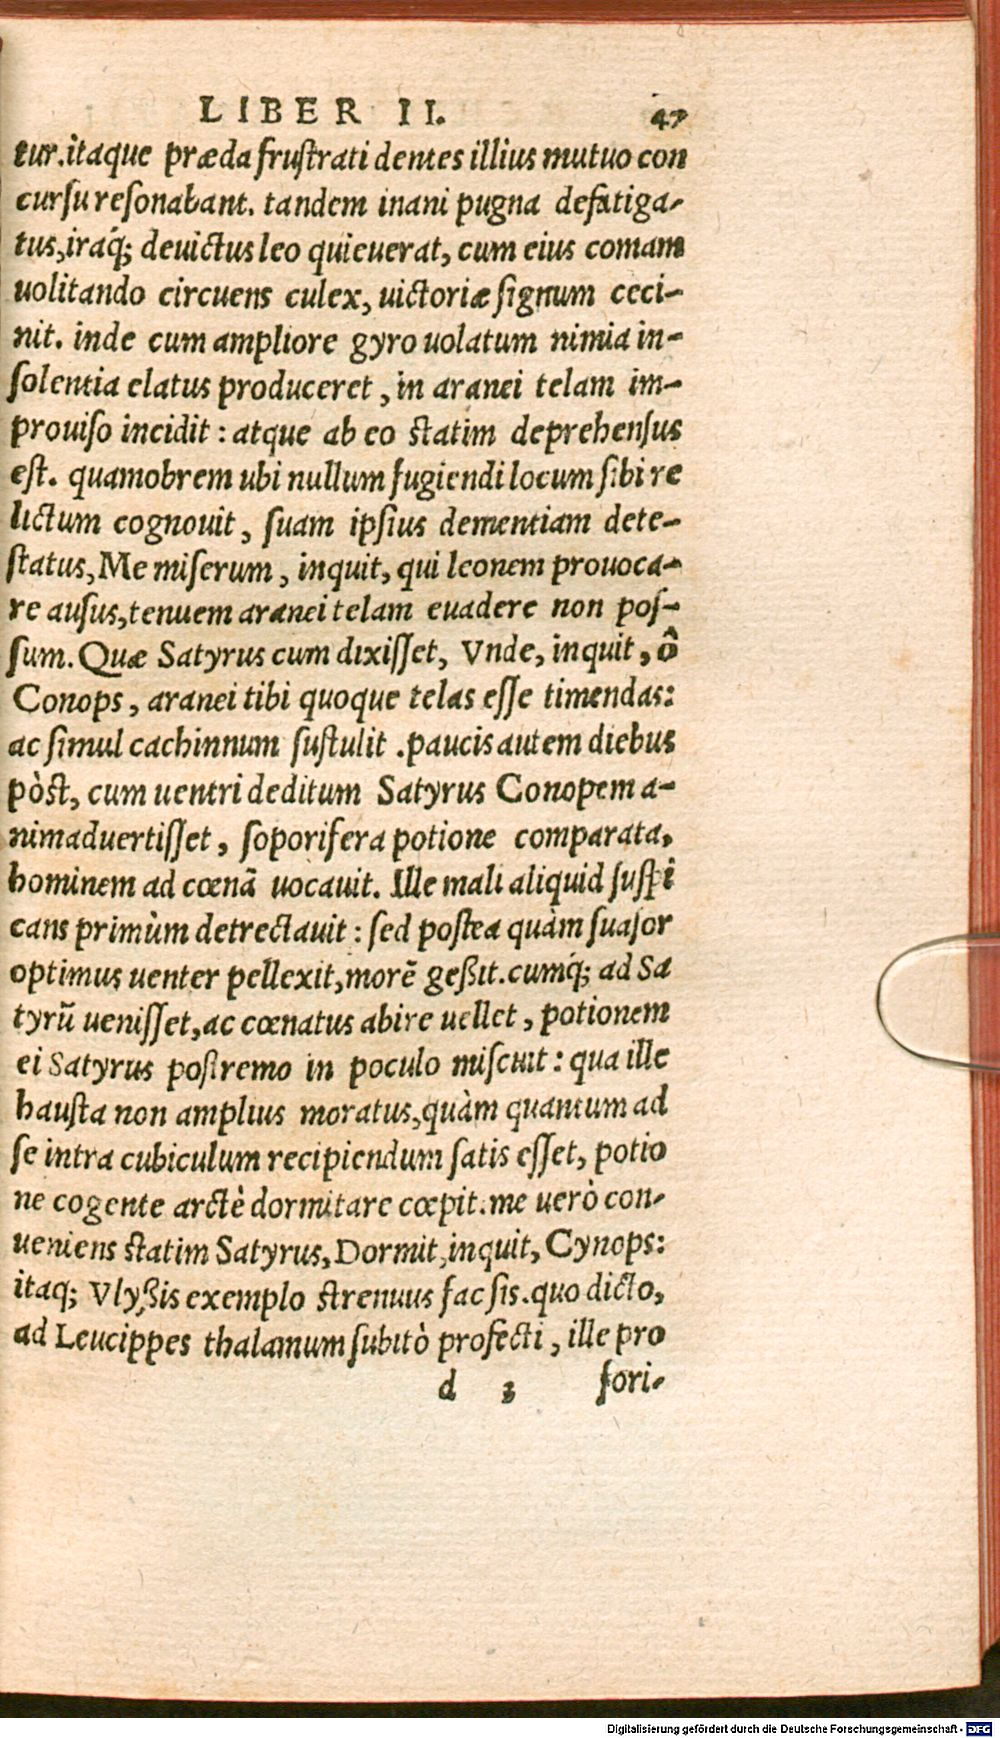 LIBER II. 47
tur.itaque præda frustrati dentes illius mutuo con
cursu resonabant. tandem inani pugna defatiga-
tus, iraq́; deuictus leo quieuerat, cum eius comam
uolitando circuens culex, uictoriæ signum ceci-
nit. inde cum ampliore gyro uolatum nimia in-
solentia elatus produceret, in aranei telam im-
prouiso incidit: atque ab eo statim deprehensus
est. quamobrem ubi nullum fugiendi locum sibi re
lictum cognouit, suam ipsius dementiam dete-
status, Me miserum, inquit, qui leonem prouoca-
re ausus, tenuem aranei telam euadere non pos-
sum. Quæ Satyrus cum dixisset, Vnde, inquit, ô
Conops, aranei tibi quoque telas esse timendas:
ac simul cachinnum sustulit. paucis autem diebus
pòst, cum uentri deditum Satyrus Conopem a-
nimaduertisset, soporifera potione comparata,
hominem ad cœnā uocauit. Ille mali aliquid suspi
cans primùm detrectauit: sed postea quàm suasor
optimus uenter pellexit, morē geßit. cumq́; ad Sa
tyrū uenisset, ac cœnatus abire uellet, potionem
ei Satyrus postremo in poculo miscuit: qua ille
hausta non amplius moratus, quàm quantum ad
se intra cubiculum recipiendum satis esset, potio
ne cogente arctè dormitare cœpit. me uerò con-
ueniens statim Satyrus, Dormit, inquit, Cynops:
itaq; Vlyßis exemplo strenuus fac sis. quo dicto,
ad Leucippes thalamum subitò profecti, ille pro
d 3 fori-
Digitalisierung gefördert durch die Deutsche Forschungsgemeinschaft - DFG